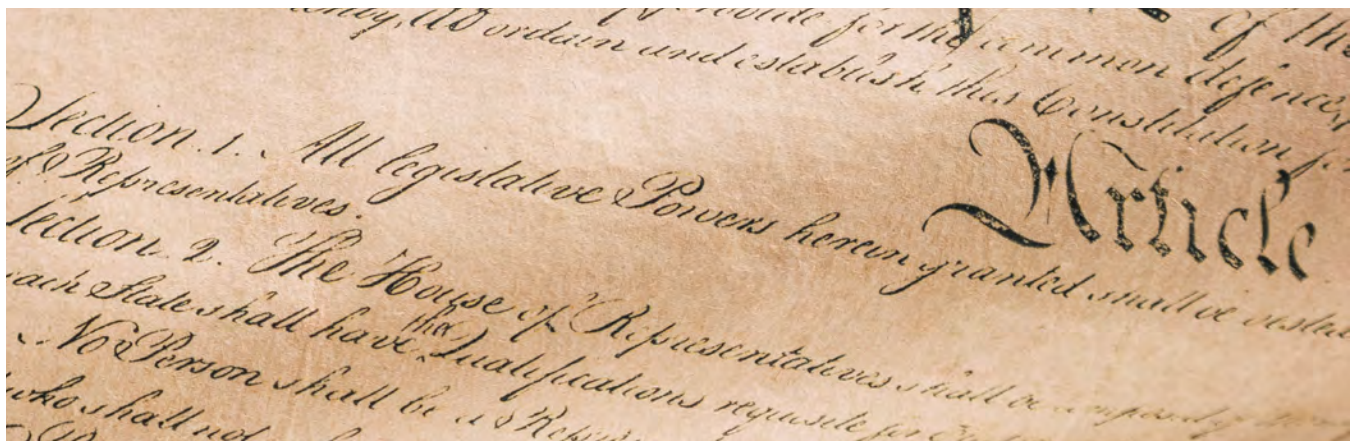 provide for the common defence, of the
do ordain and establish this Constitution for
Article
Section. 1. All legislative Powers herein granted shall be vested
of Representatives.
Section. 2. The House of Representatives shall be composed
State shall have the Qualifications requisite for
No Person shall be a
who shall not